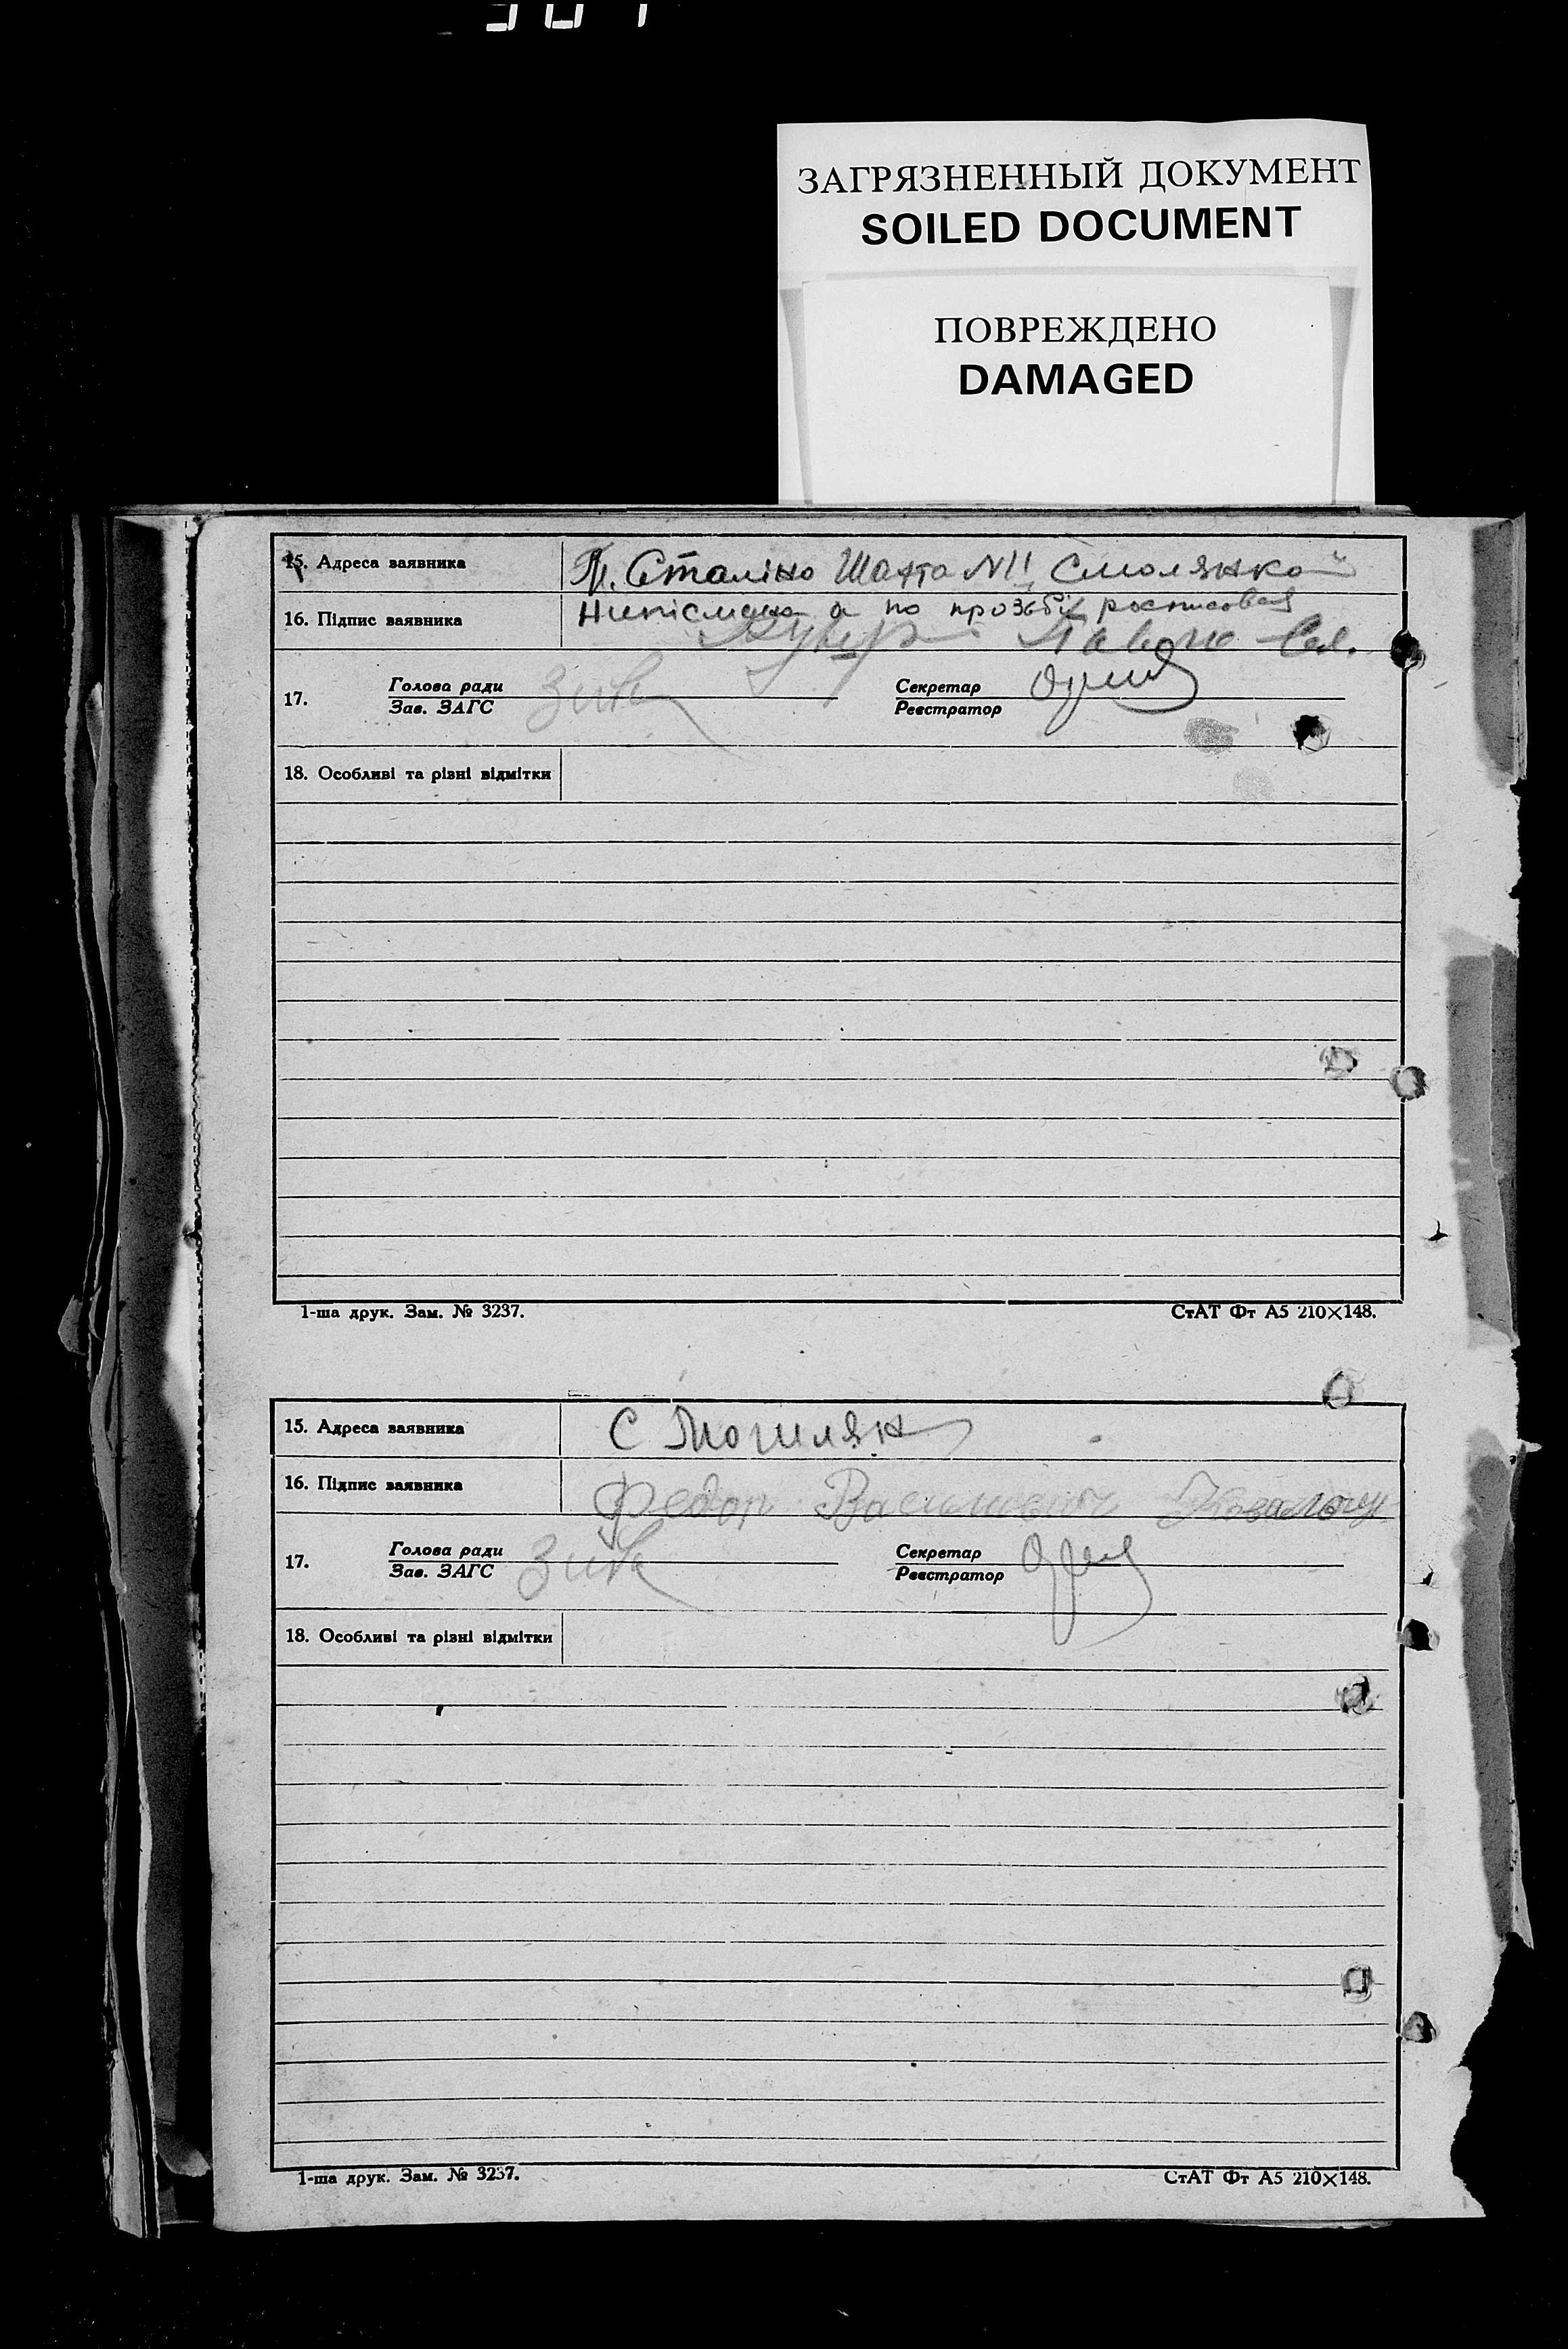 ЗАГРЯЗНЕННЫЙ ДОКУМЕНТ
SOILED DOCUMENT
ПОВРЕЖДЕНО
DAMAGED
15. Адреса заявника Сталіно Шахта N11 Смолянкой
16. Підпис заявника Нипісмена а по прозьбі росписовся
Павло
17. Голова ради Секретар
Зав. ЗАГС Реєстратор
18. Особливі та різні відмітки
1-ша друк. Зам. № 3237. СтАТ Фт А5 210×148.
15. Адреса заявника С
16. Підпис заявника Федор Василиевич
17. Голова ради Секретар
Зав. ЗАГС Реєстратор
18. Особливі та різні відмітки
1-ша друк. Зам. № 3237. СтАТ Фт А5 210×148.